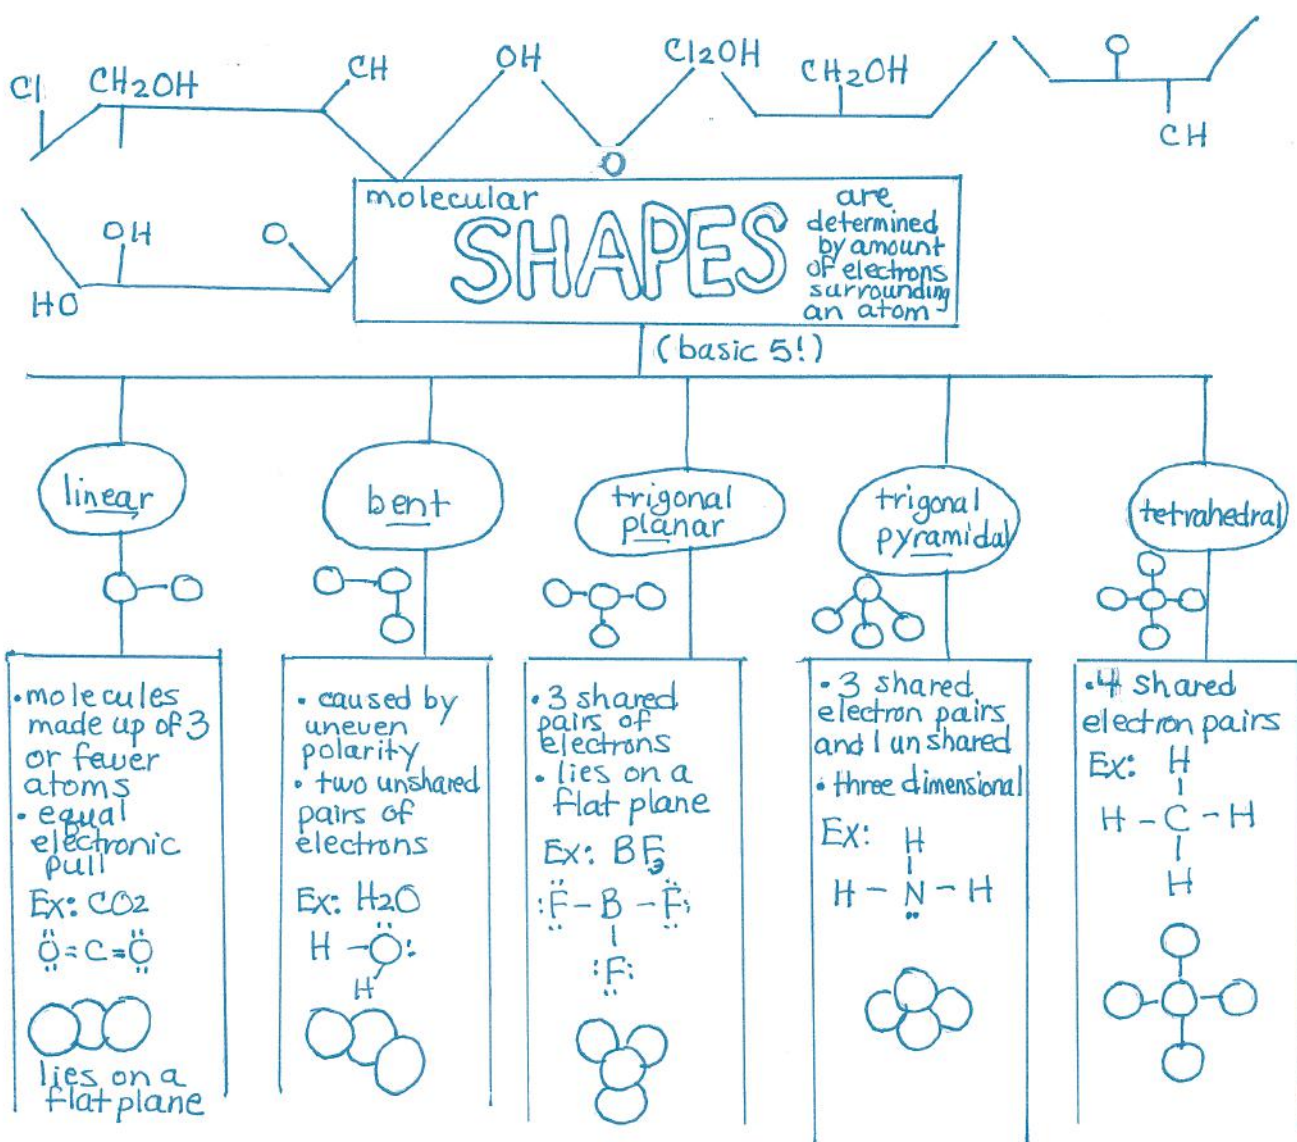 Cl
CH2OH
CH
OH
Cl2OH
CH2OH
O
CH
O
HO
OH
O
molecular
SHAPES
are
determined
by amount
of electrons
surrounding
an atom
(basic 5!)
linear
molecules
made up of 3
or fewer
atoms
equal
electronic
pull
Ex: CO2
O=C=O
lies on a
flat plane
bent
caused by
uneven
polarity
two unshared
pairs of
electrons
Ex: H2O
H-O:
H
trigonal
planar
3 shared
pairs of
electrons
lies on a
flat plane
Ex: BF3
:F-B-F:
:F:
trigonal
pyramidal
3 shared
electron pairs
and 1 unshared
three dimensional
Ex:
H
H-N-H
tetrahedral
4 shared
electron pairs
Ex:
H
H-C-H
H